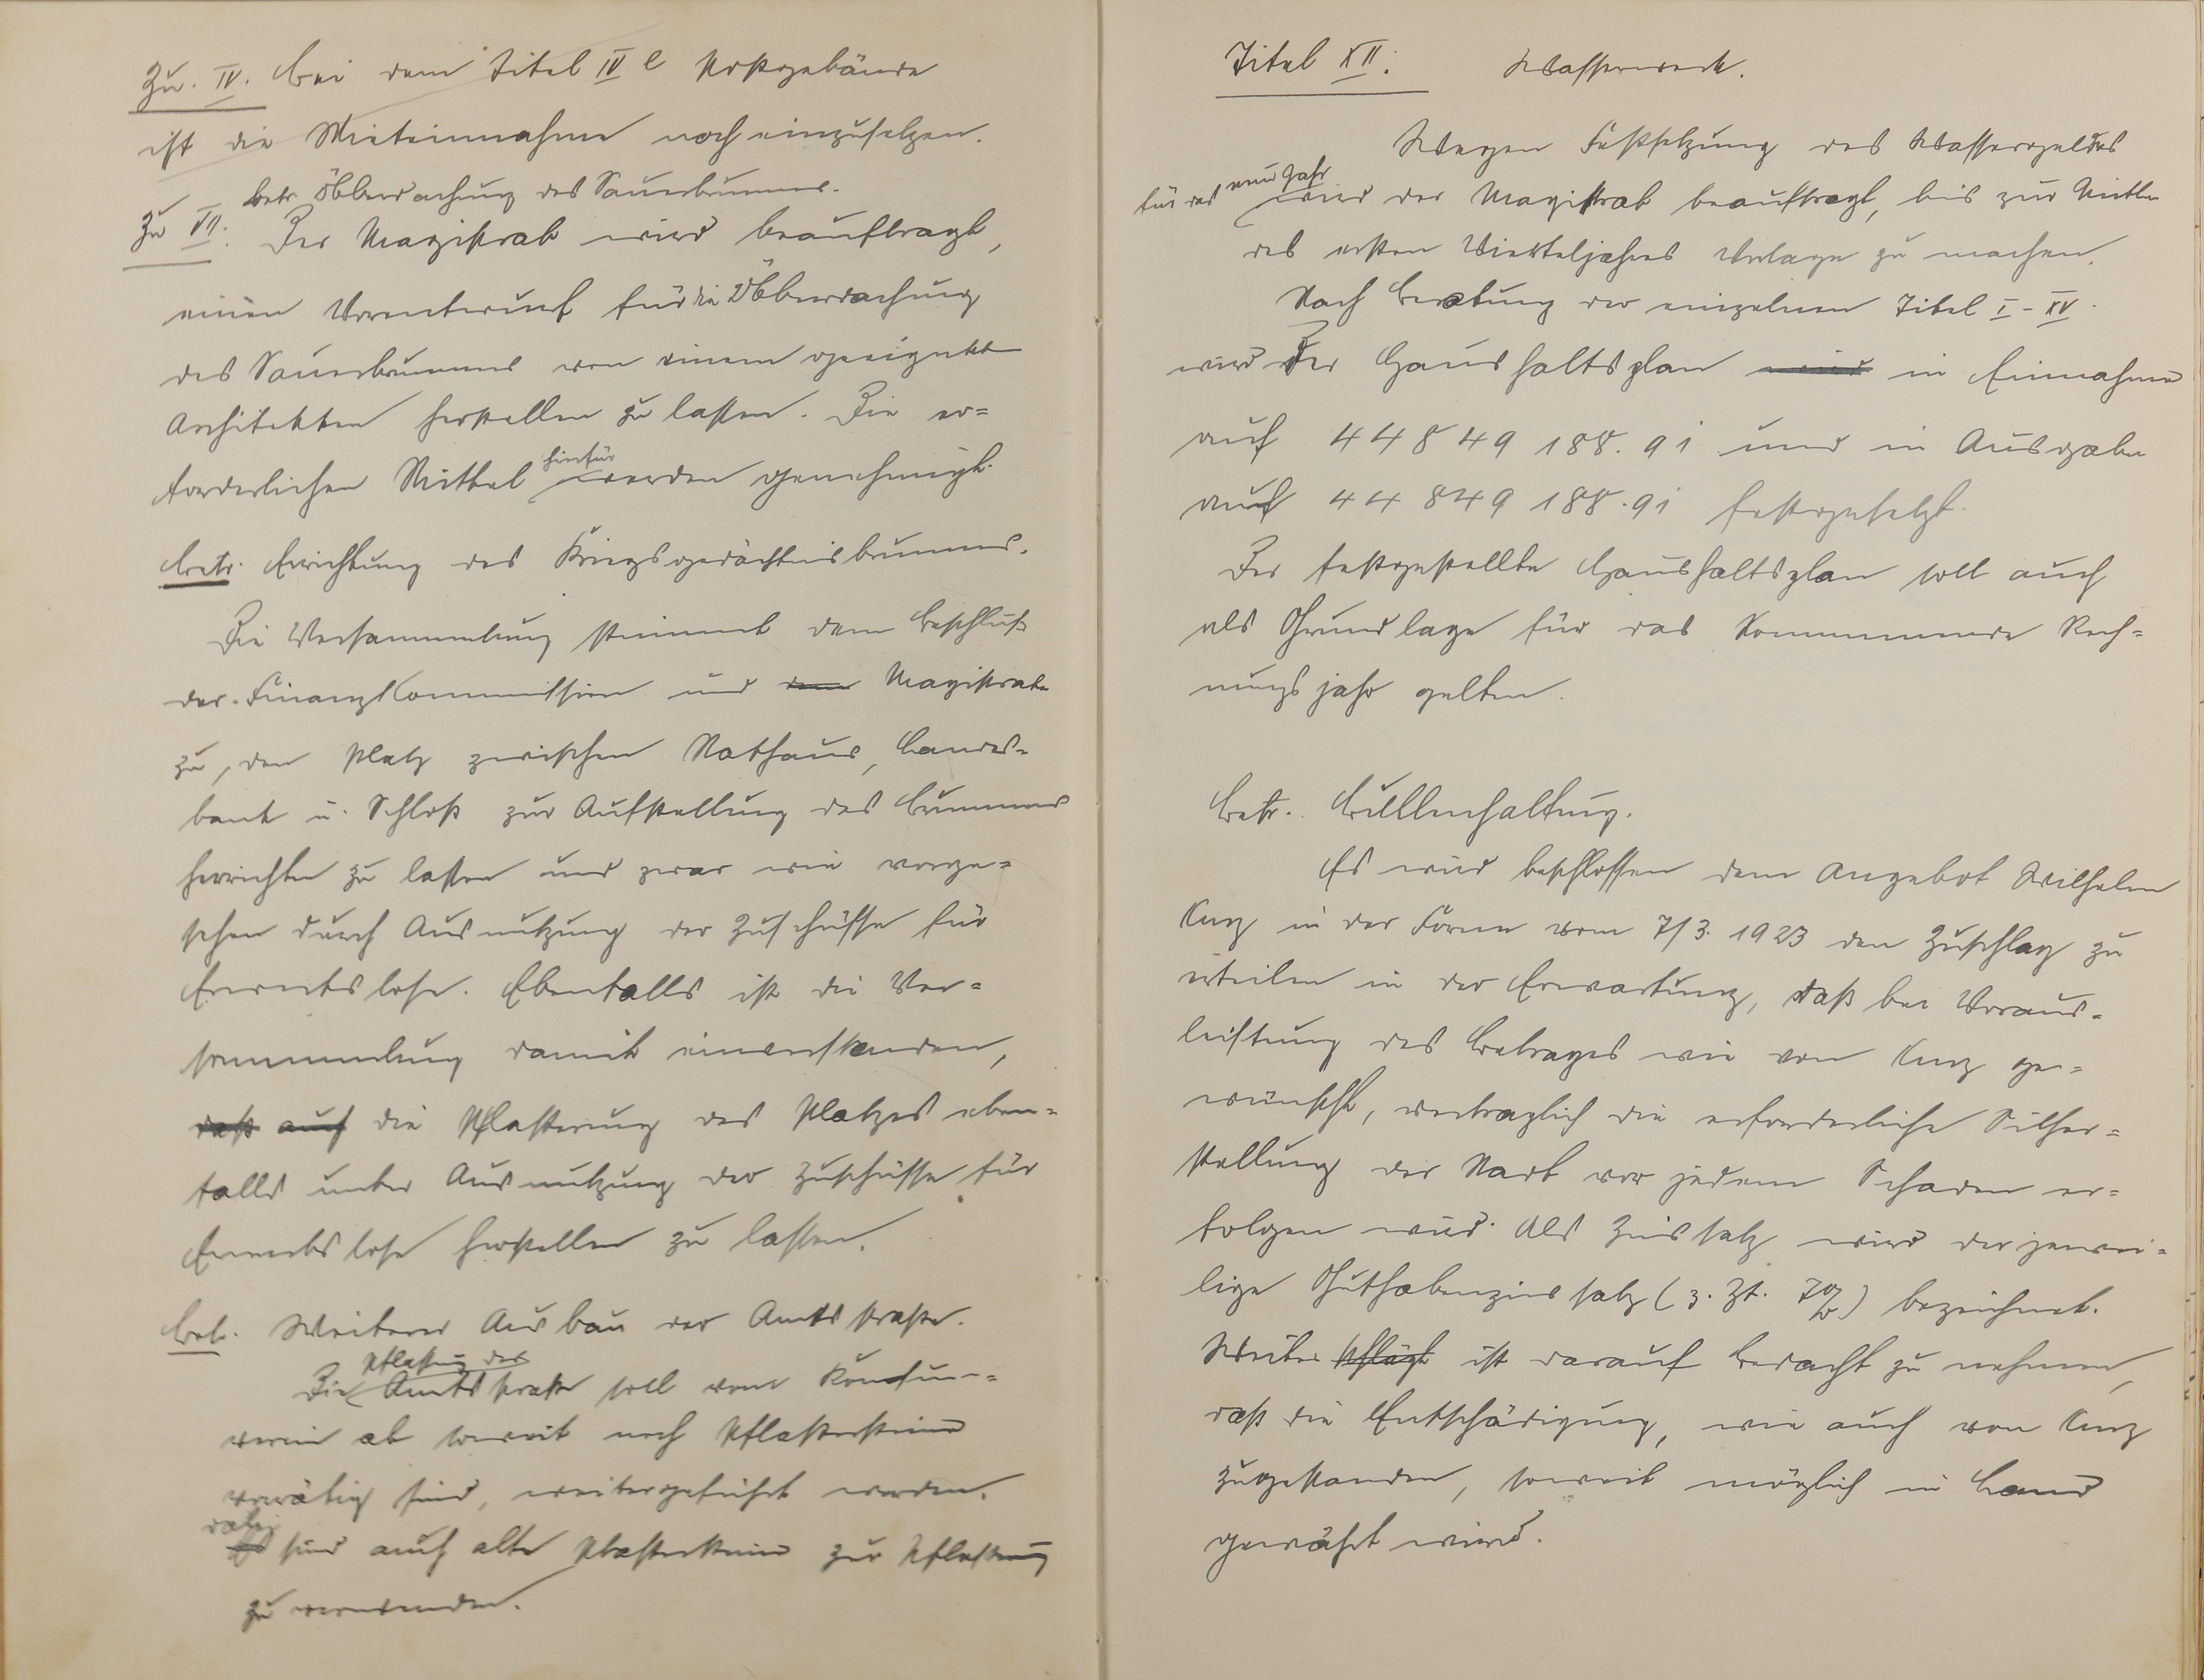 Zu. IV. Bei dem Titel IV e Postgebäude
ist die Mieteinnahme noch einzusetzen.
betr. Überdachung des Sauerbrunnens.
Zu VII. Der Magistrat wird beauftragt,
einen Vorentwurf für die Überdachung
des Sauerbrunnens von einem geeigneten
Architekten herstellen zu lassen. Die er=
forderlichen Mittel hierfür werden genehmigt.
betr. Errichtung des Kriegsgedächtnisbrunnens.
Die Versammlung stimmt dem Beschluß
der Finanzkommission und dem Magistrate
zu, den Platz zwischen Rathaus, Landes=
bank u. Schloß zur Aufstellung des Brunnens
herrichten zu lassen und zwar wie vorge=
sehen durch Ausnutzung der Zuschüsse für
Erwerbslose. Ebenfalls ist die Ver=
sammlung damit einverstanden,
daß auch die Pflasterung des Platzes eben=
falls unter Ausnutzung der Zuschüsse für
Erwerbslose herstellen zu lassen.
Betr. Weiterer Ausbau der Amtsstraße.
Pflasterung der
Die Amtsstraße soll vom Konsum=
verein ab soweit noch Pflastersteine
vorrätig sind, weitergeführt werden.
dabei
Es sind auch alte Pflastersteine zur Pflasterung
zu verwenden.
Titel XII. Wasserwerk.
Wegen Festsetzung des Wassergeldes
für das neue Jahr wird der Magistrat beauftragt, bis zur Mitte
des ersten Vierteljahres Vorlage zu machen.
Nach Beratung der einzelnen Titel I - XV
wird Der Haushaltsplan wird in Einnahme
auf 44 849 188.91 und in Ausgabe
auf 44 849 188.91 festgesetzt.
Der festgestellte Haushaltsplan soll auch
als Grundlage für das kommende Rech=
nungsjahr gelten.
Betr. Bullenhaltung.
Es wird beschlossen dem Angebot Wilhelm
Kurz in der Form vom 7/3. 1923 den Zuschlag zu
erteilen in der Erwartung, daß bei Voraus=
leistung des Betrages wie von Kurz ge=
wünscht, vertraglich die erforderliche Sicher=
stellung der Stadt vor jedem Schaden er=
folgen wird. Als Zinssatz wird der jewei=
lige Guthabenzinssatz (z. Zt. 7%) bezeichnet.
Weiter schlägt ist darauf Bedacht zu nehmen,
daß die Entschädigung, wie auch von Kurz
zugestanden, soweit möglich in Land
gewährt wird.